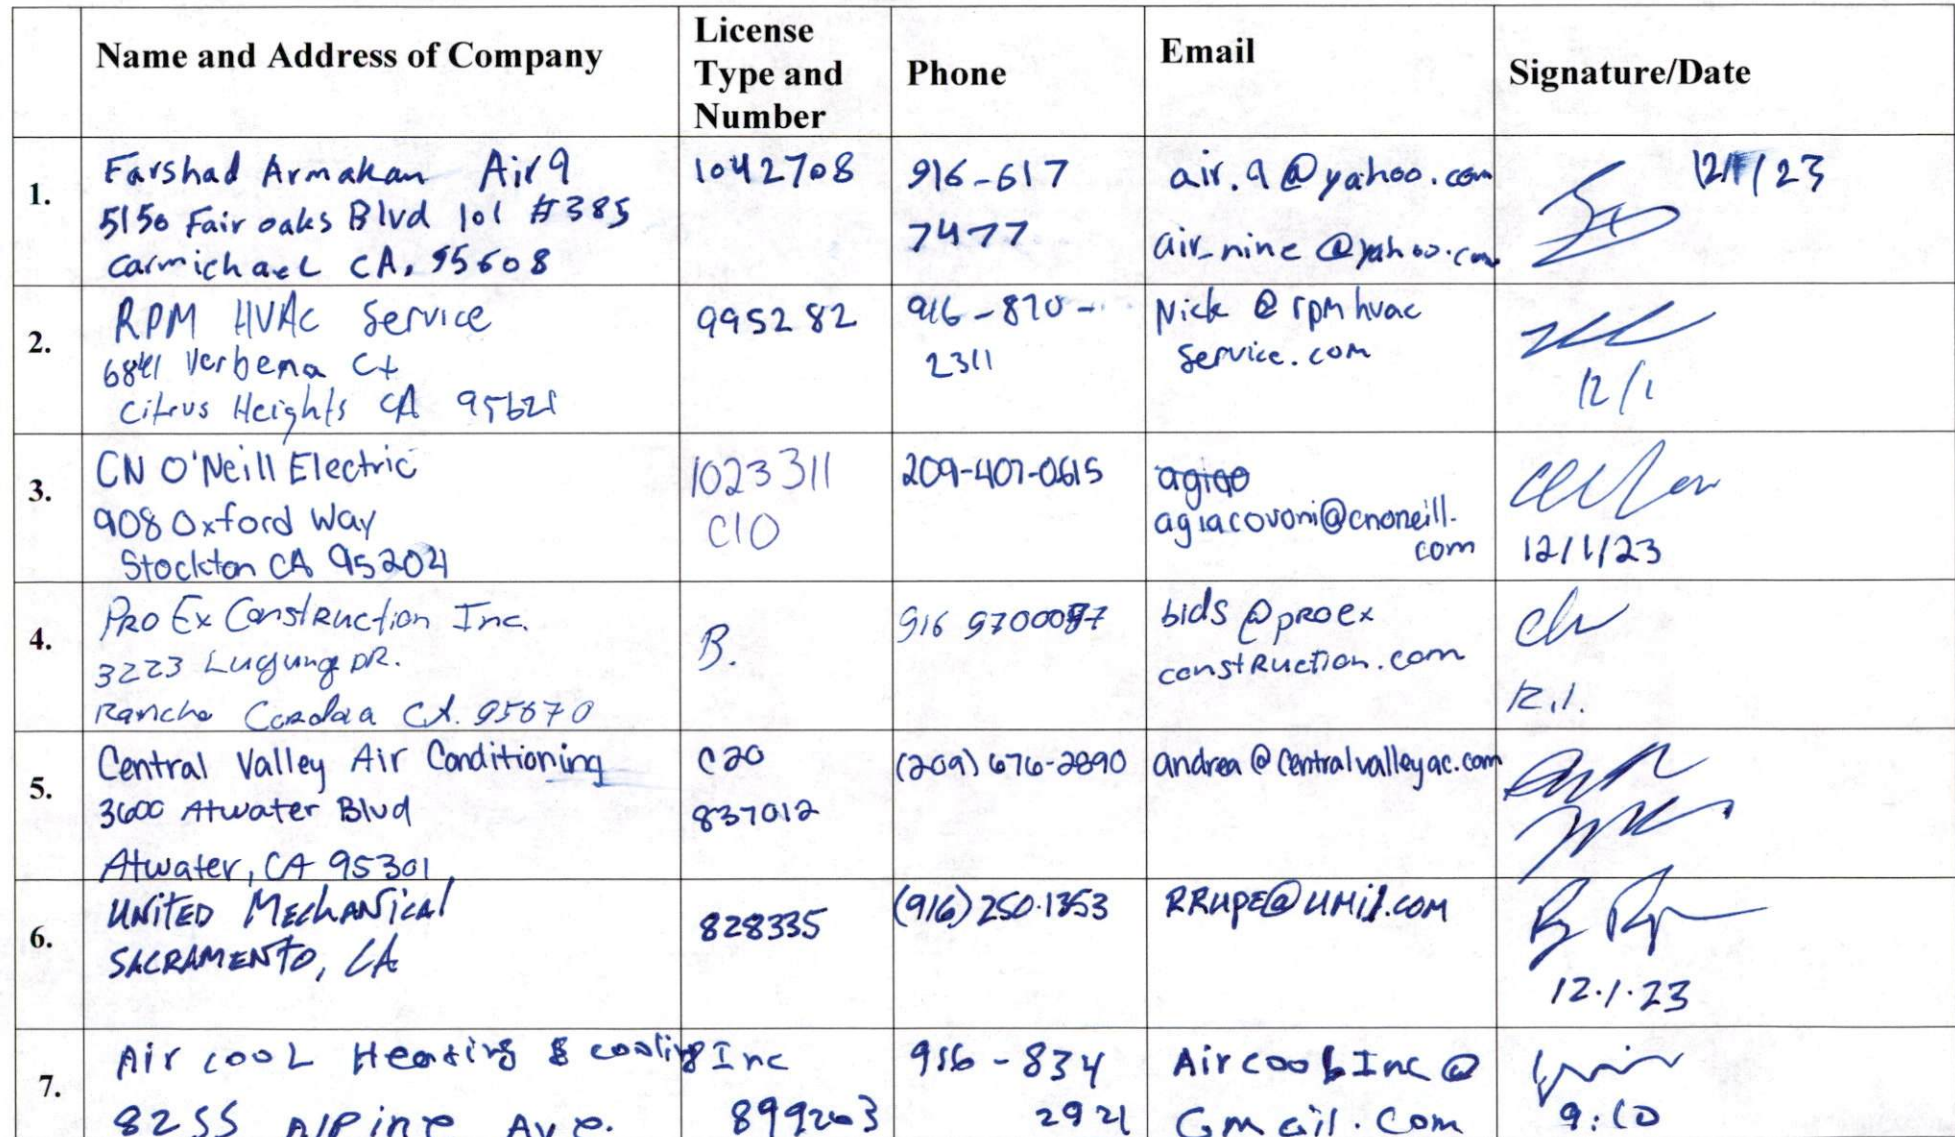 Name and Address of Company
License Type and Number
Phone
Email
Signature/Date
1.
Farshad Armakan Air 9
5150 Fair oaks Blvd 101 #385
Carmichael CA. 95608
1042708
916-617
7477
air.9@yahoo.com
air_nine@yahoo.com
12/1/23
2.
RPM HVAC Service
6841 Verbena Ct
Citrus Heights CA 95621
995282
916-870-
2311
Nick@rpmhvac
service.com
12/1
3.
CN O'Neill Electric
908 Oxford Way
Stockton CA 95204
1023311
C10
209-407-0615
agiao
agiacovoni@cnoneill.
com
12/1/23
4.
Pro Ex Construction Inc.
3223 Luyung DR.
Rancho Cordova CA. 95670
B.
916 9700097
bids@proex
construction.com
12.1.
5.
Central Valley Air Conditioning
3600 Atwater Blvd
Atwater, CA 95301
C20
837012
(209) 676-2890
andrea@Centralvalleyac.com
6.
UNITED MECHANICAL
SACRAMENTO, CA
828335
(916) 250-1353
RRUPE@UMI1.COM
12.1.23
7.
Air cooL Heating & cooling Inc
8255 Alpine Ave.
899203
916-834
2921
AircoolInc@
Gmail.Com
9:10